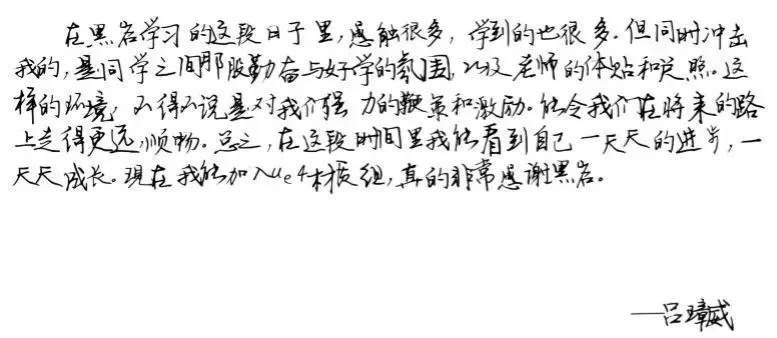 在黑岩学习的这段日子里,感触很多,学到的也很多.但同时冲击
我的,是同学之间那股勤奋与好学的氛围,以及老师的体贴和关照。这
样的环境,不得不说是对我们强力的鞭策和激励。能令我们在将来的路
上走得更远,顺畅。总之,在这段时间里我能看到自己一天天的进步,一
天天成长。现在我能加入ue4材质组,真的非常感谢黑岩。
——吕璋威